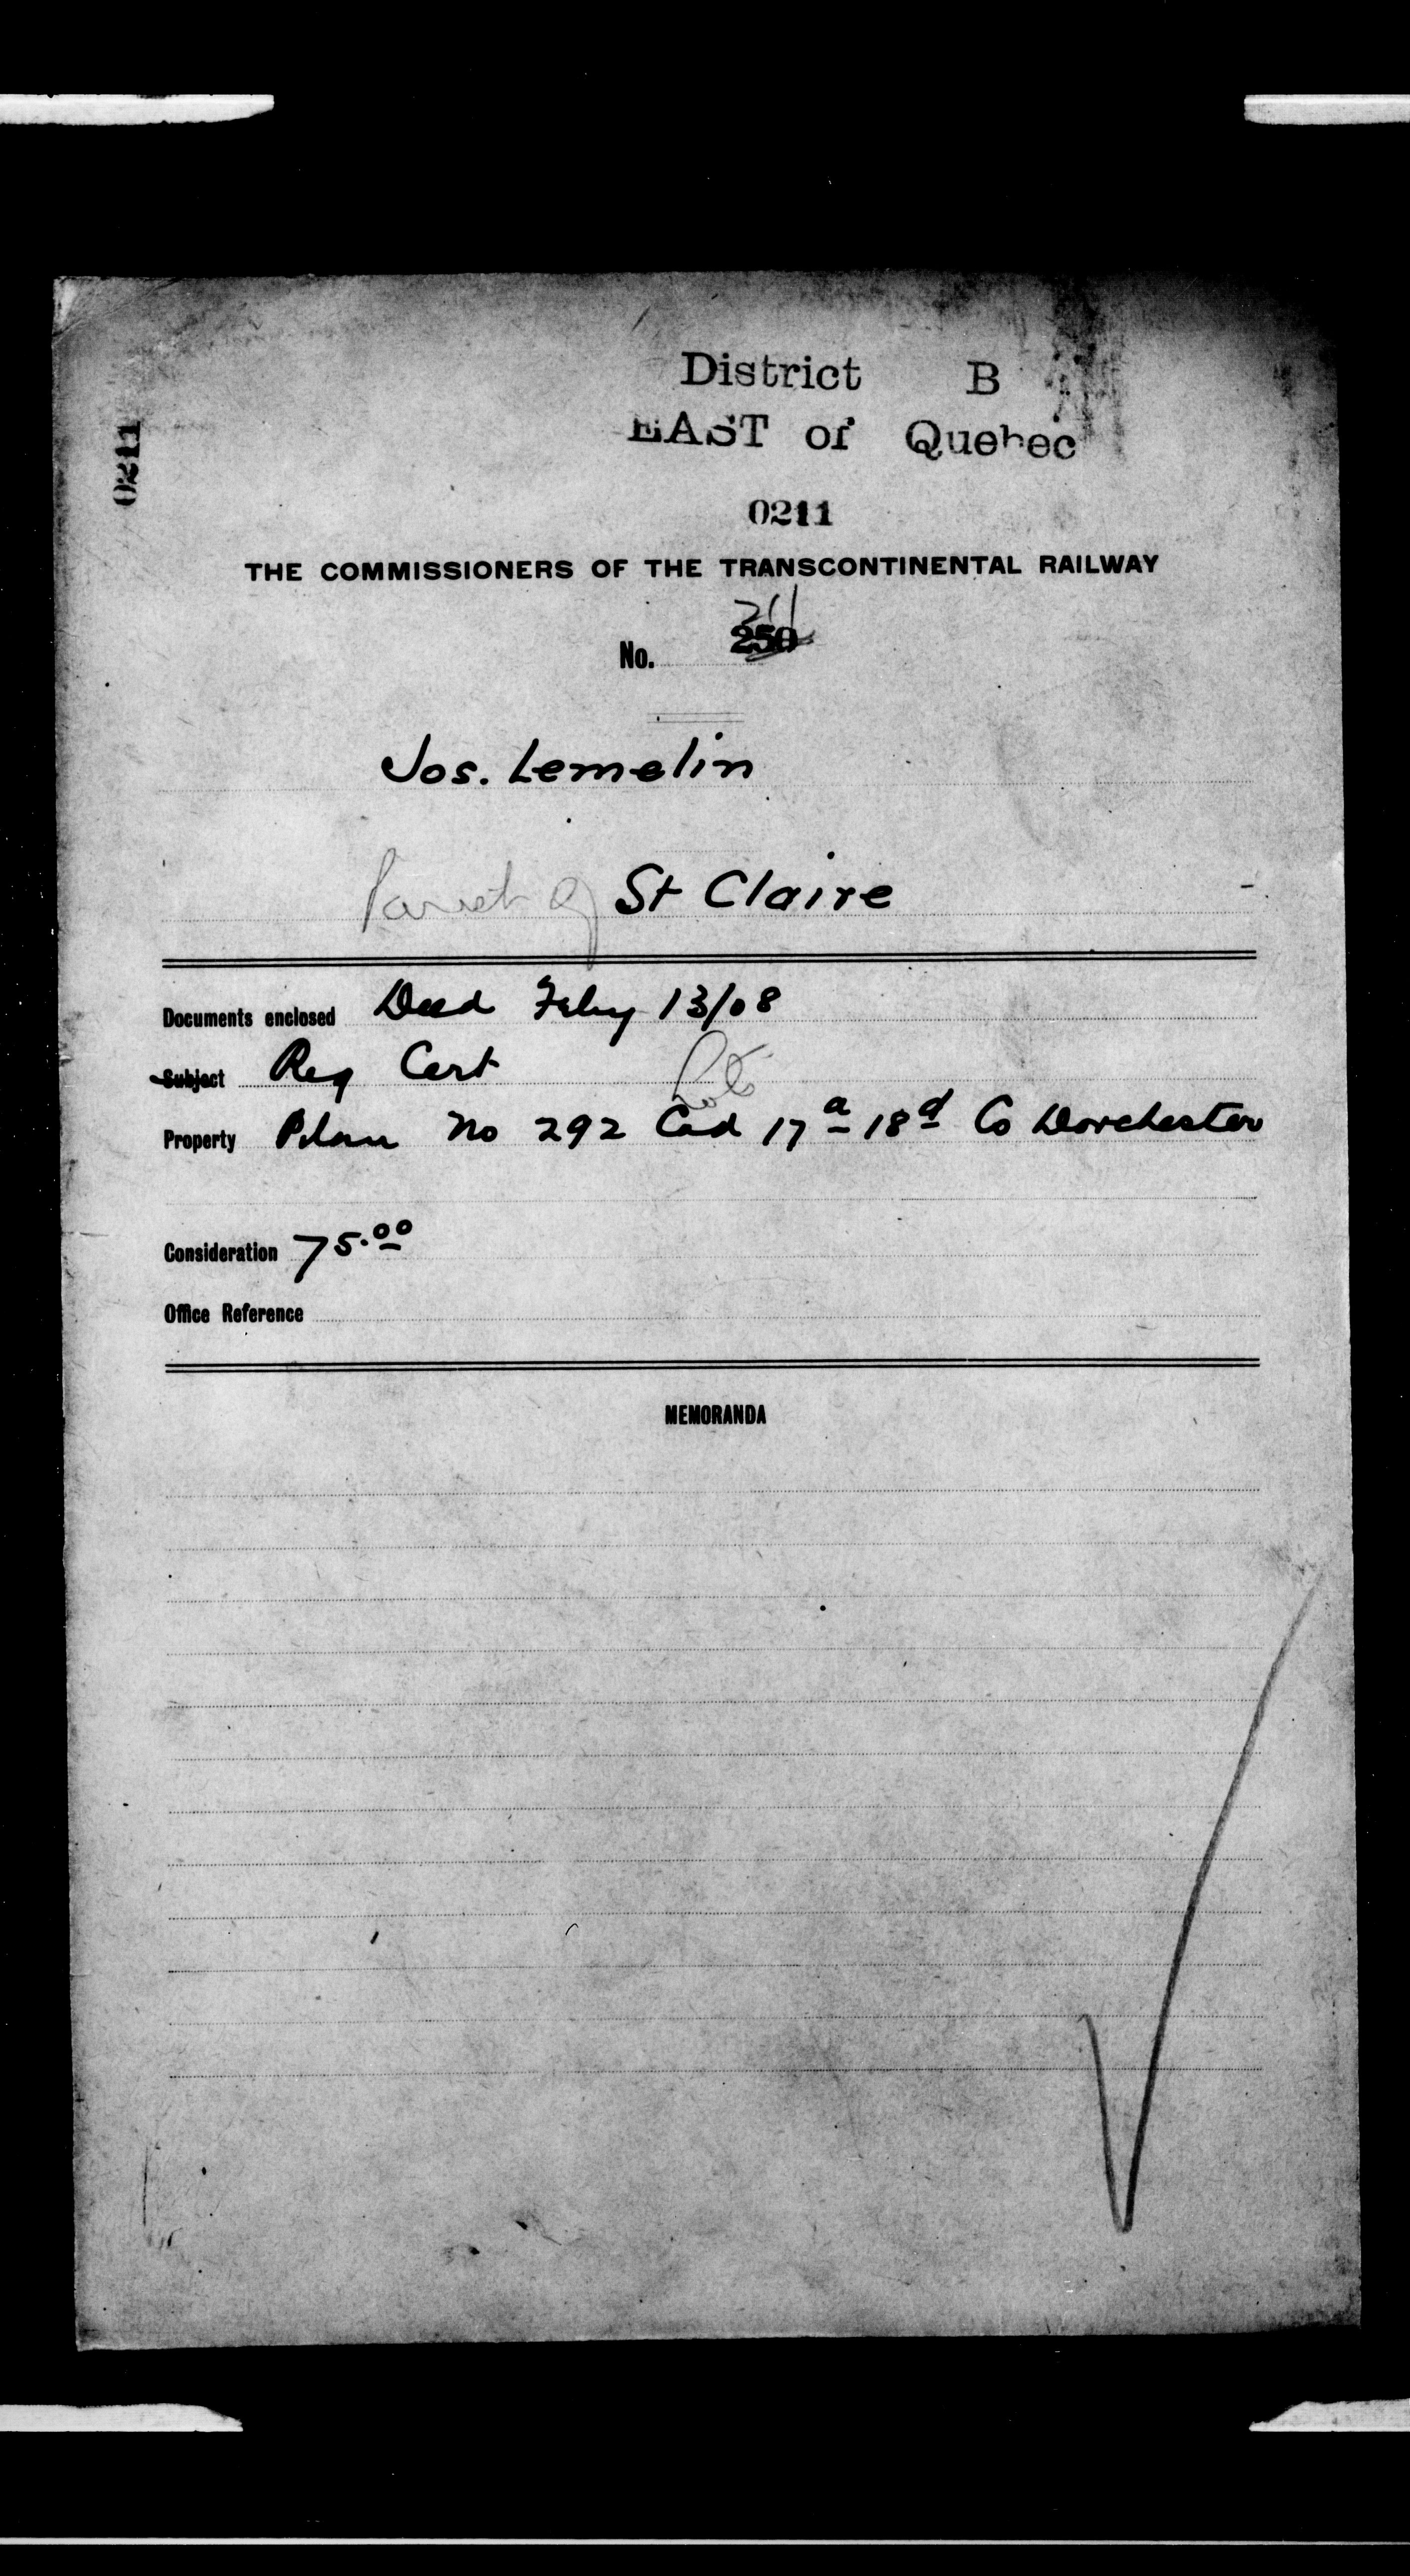 District B
EAST of Quebec
0211
0211
THE COMMISSIONERS OF THE TRANSCONTINENTAL RAILWAY
211
No. 250
Jos. Lemelin
Parish of St Claire
Documents enclosed Deed Feby 13/08
Subject Reg Cert
Lots
Property Plan No 292 Cad 17a 18d Co Dorchester
Consideration 75.00
Office Reference
MEMORANDA